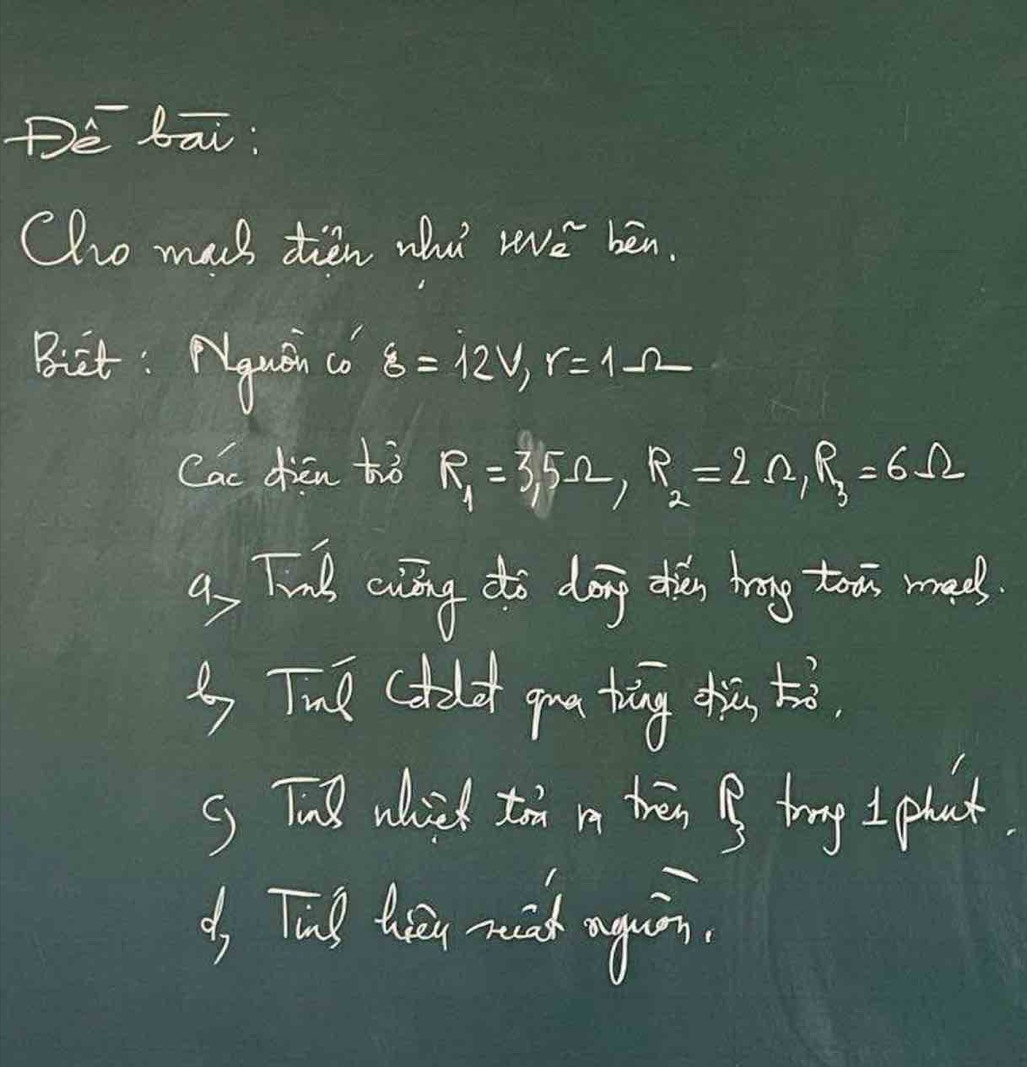 Đề bài:
Cho mạch điện như hvẽ bên.
Biết: Nguồn có ε = 12V, r = 1Ω
Các điện trở R₁ = 3,5Ω, R₂ = 2Ω, R₃ = 6Ω
a, Tính cường độ dòng điện trong toàn mạch.
b, Tính cđdđ qua từng điện trở.
c, Tính nhiệt toả ra trên R₃ trong 1 phút.
d, Tính hiệu suất nguồn.